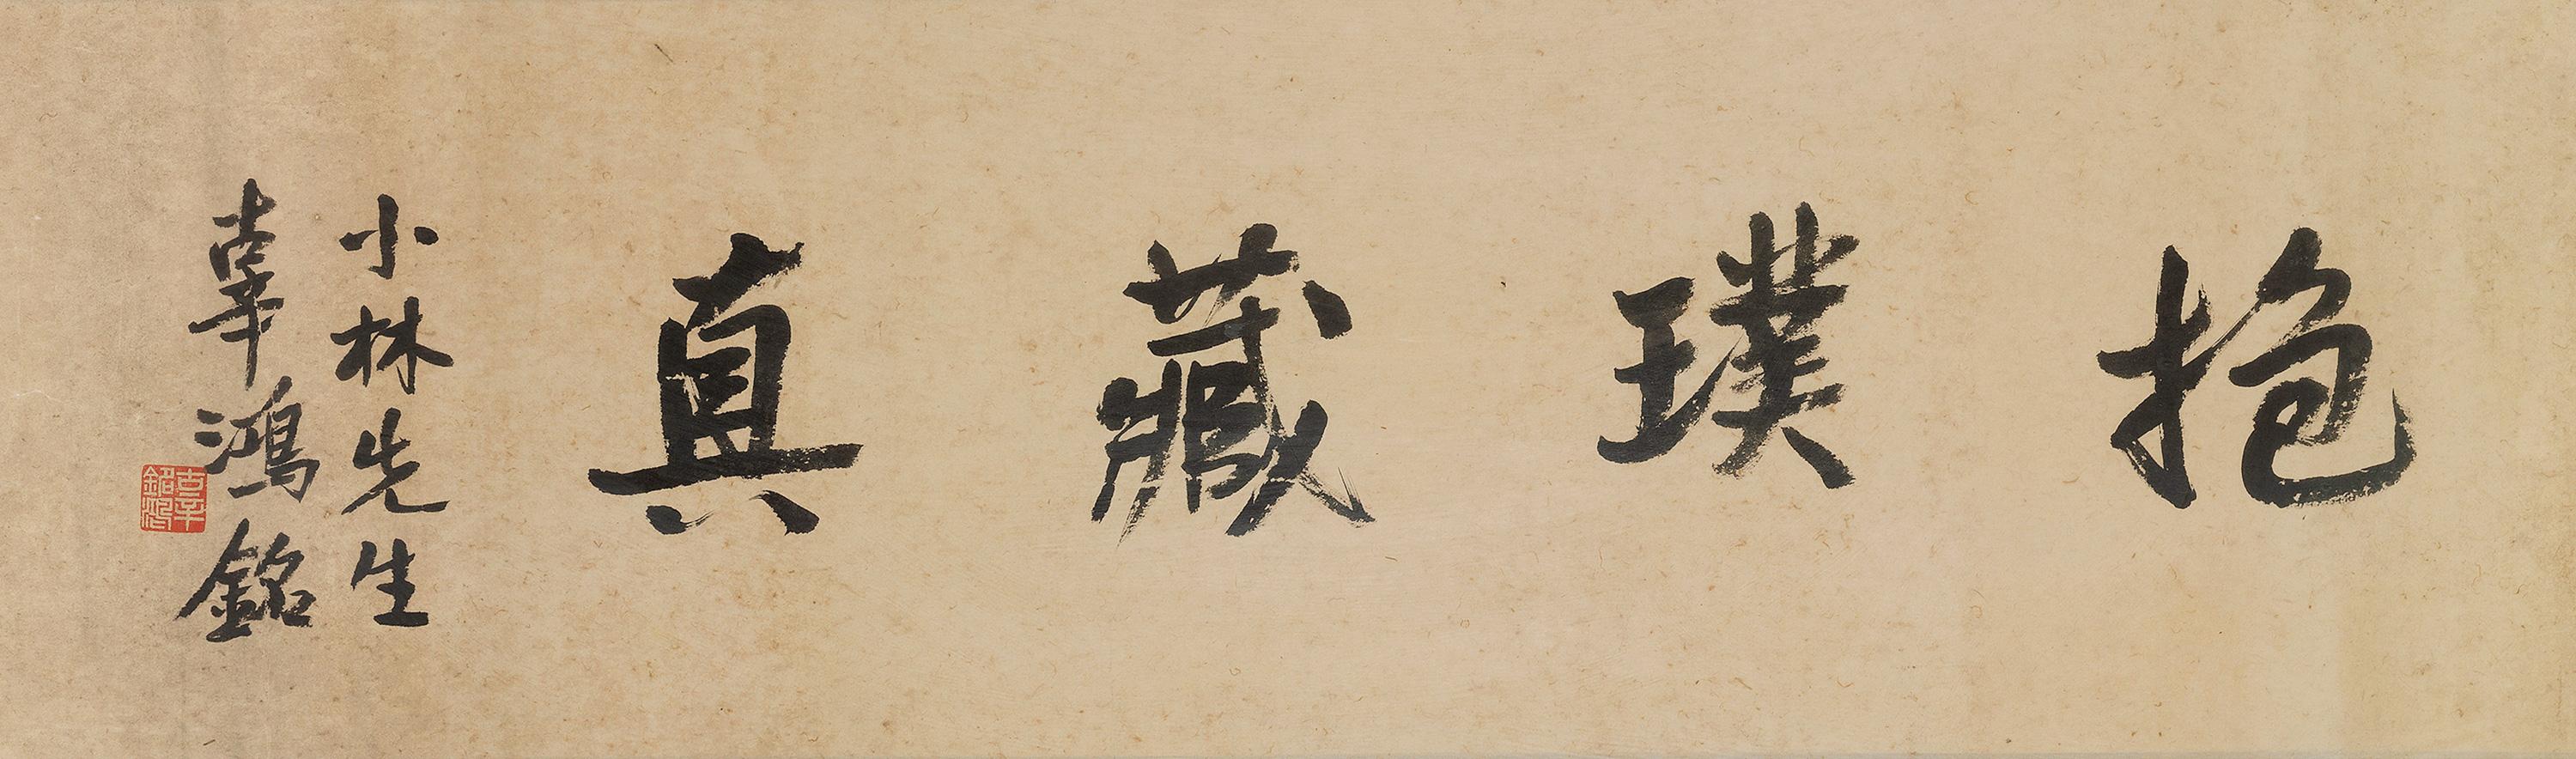 抱璞藏真
小林先生
辜鴻銘
辜鴻銘